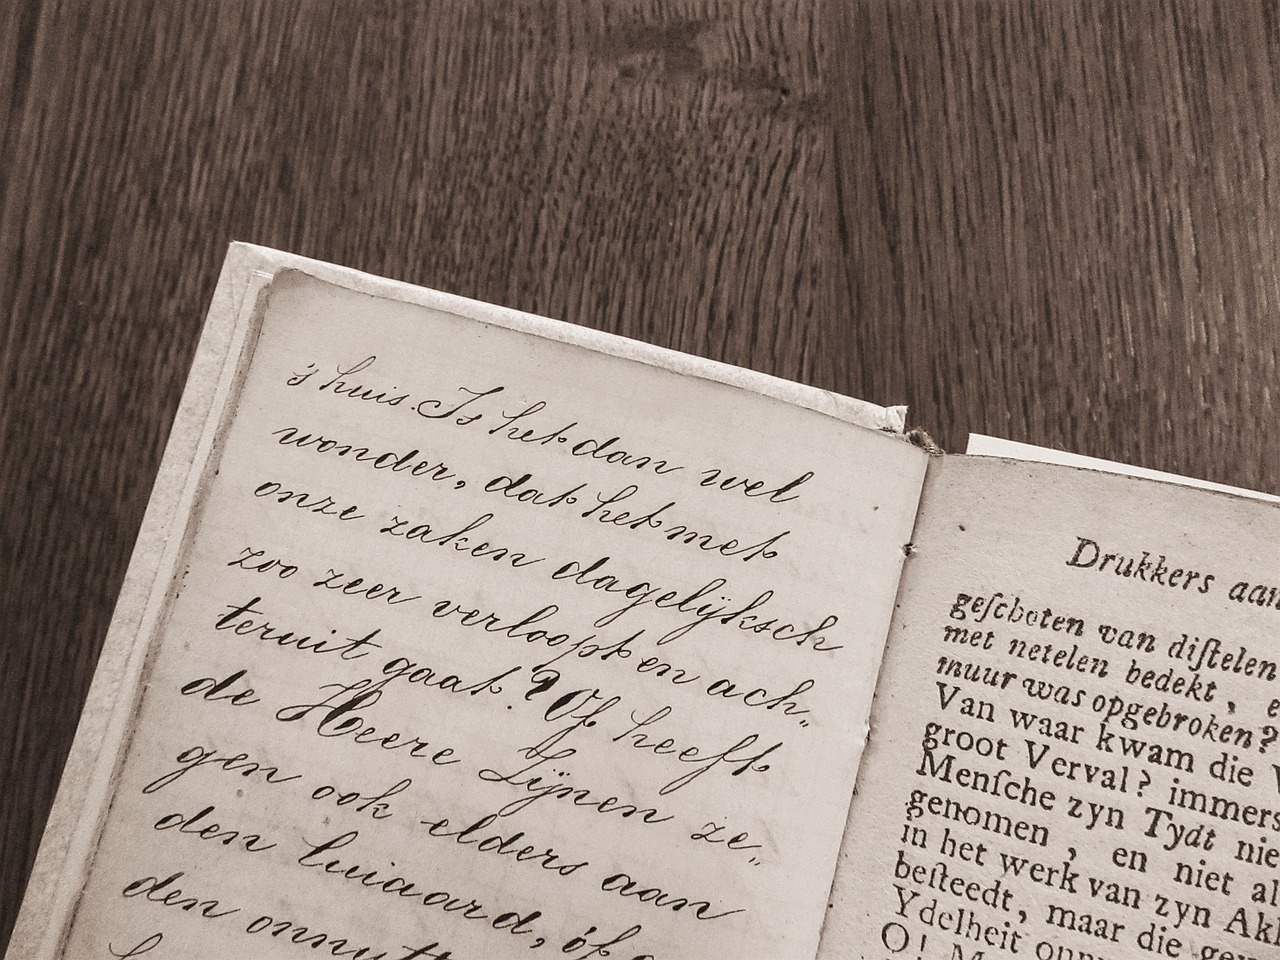 's huis. Is het dan wel
wonder, dat het met
onze zaken dagelijksch
zoo zeer verloopt en ach„
teruit gaat? Of heeft
de Heere Zijnen ze„
gen ook elders aan
den luiaard, óf
den
Drukkers aan
geſchoten van diſtelen
met netelen bedekt, e
muur was opgebroken?
Van waar kwam die V
groot Verval? immers
Menſche zyn Tydt nie
genomen, en niet al
in het werk van zyn Akk
beſteedt, maar die gew
Ydelheit onn
O! M